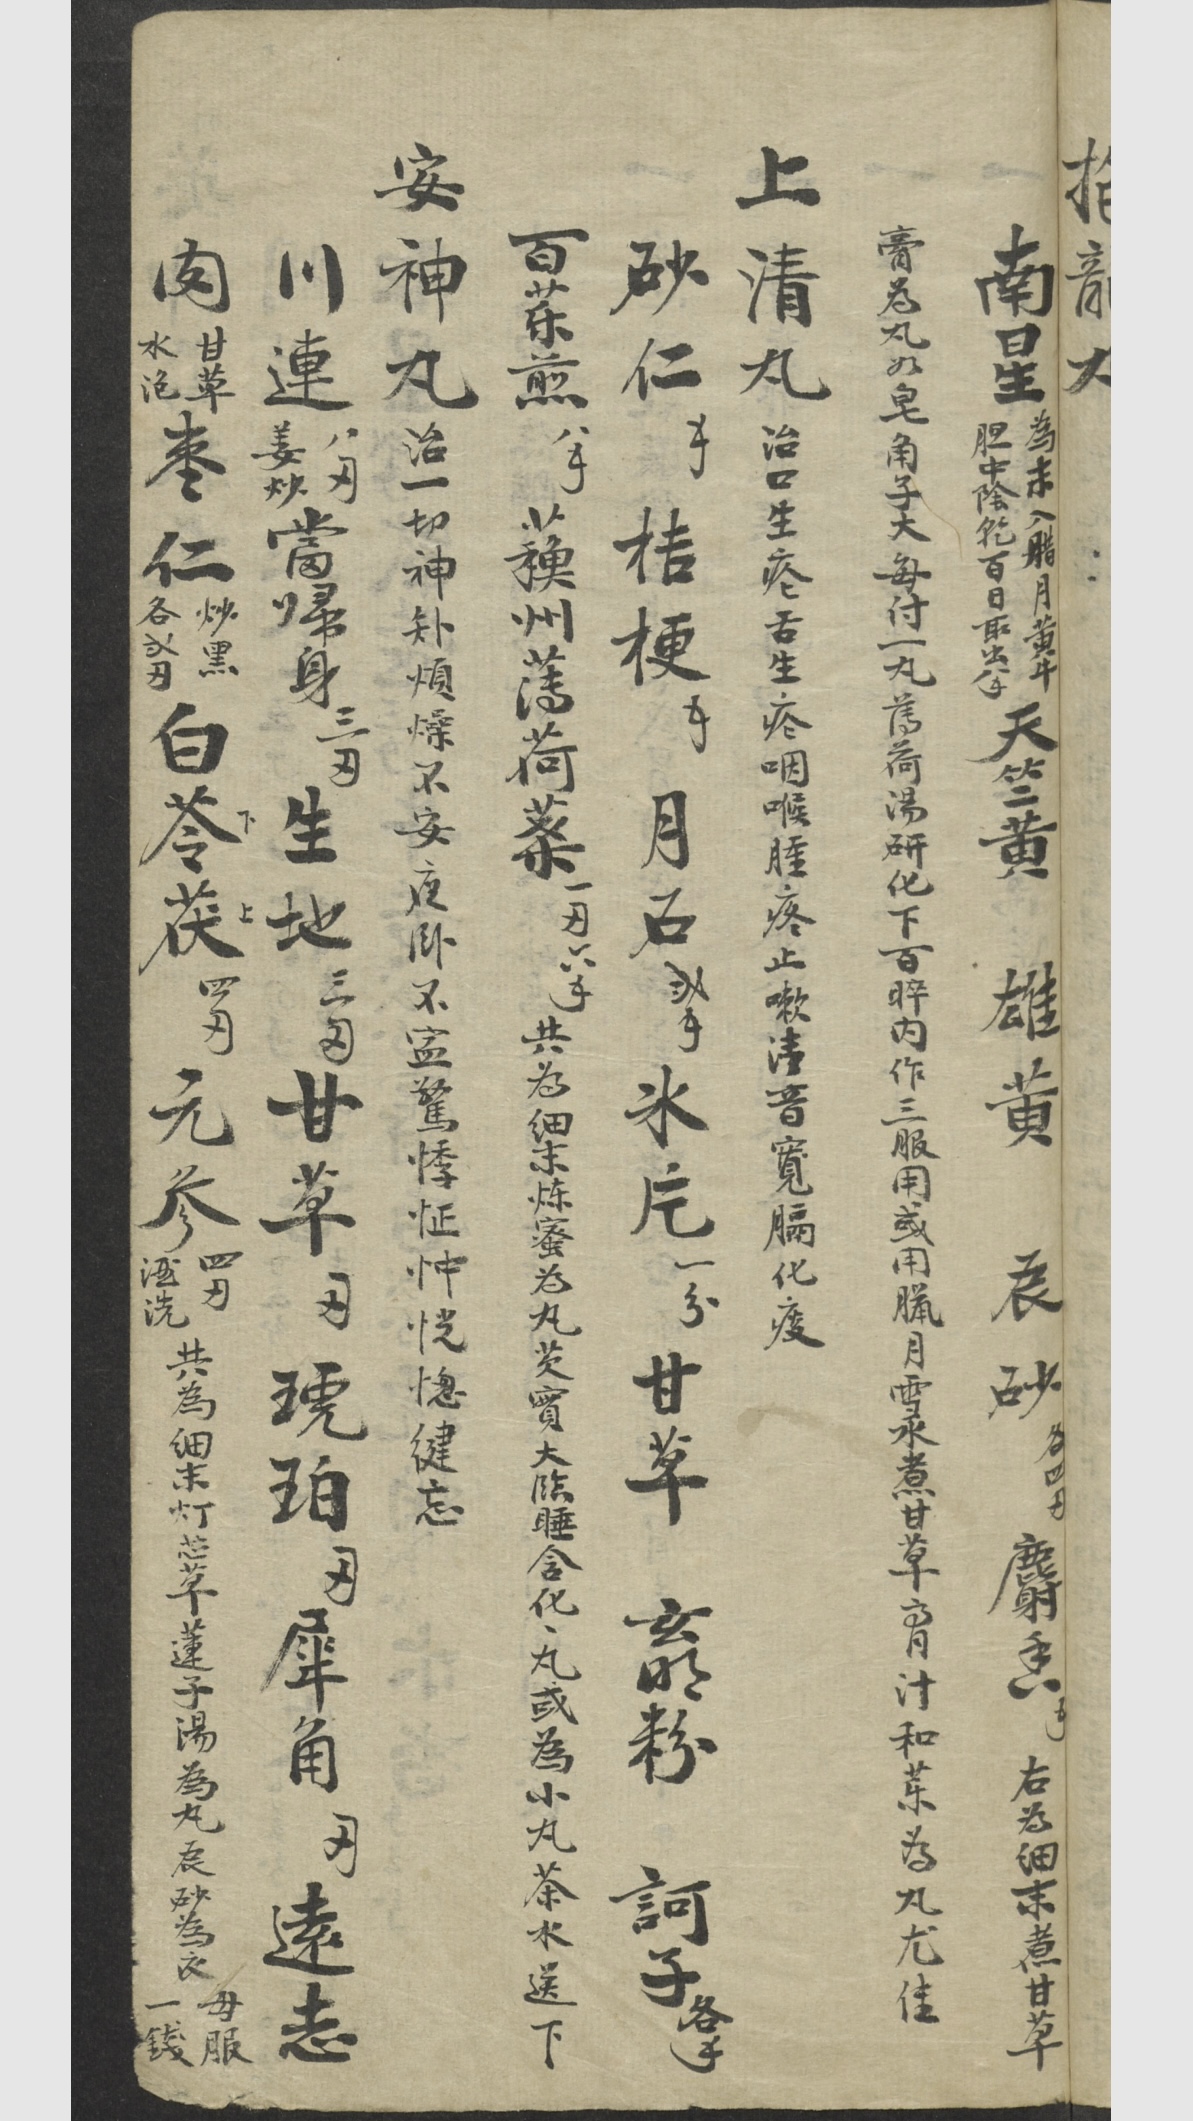 抱龍丸
南星為末入腊月黄牛胆中陰乾百日取出 天竺黄 雄黄 辰砂各四刄 麝香 右為细末煮甘草
膏為丸如皂角子大每付一丸薄荷湯研化下百晬内作三服用或用臘月雪水煮甘草膏汁和茱為丸尤佳
上清丸治口生疮舌生疼咽喉腫疼止嗽清音寬膈化痰
砂仁 桔梗 月石 氷片一分 甘草 粉 訶子各
百茱煎八 蘓州薄荷葉一刄六 共為细末炼蜜為丸芡實大臨睡含化丶丸或為小丸茶水送下
安神丸治一切神 煩燥不安夜卧不寍驚悸怔忡恍惚健忘
川連八刄姜炒 當歸身三刄 生地三刄 甘草刄 琥珀刄 犀角刄 遠志
肉甘草水泡 枣仁炒黑各弍刄 白苓下茯上四刄 元参四刄酒洗 共為细末灯芯草蓮子湯為丸辰砂為衣每服一錢